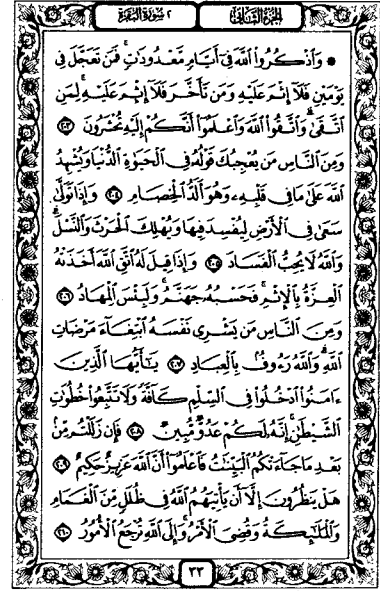 ٢ سورة البقرة الجزء الثاني
* وَاذْكُرُوا اللَّهَ فِي أَيَّامٍ مَّعْدُودَاتٍ فَمَن تَعَجَّلَ فِي
يَوْمَيْنِ فَلَا إِثْمَ عَلَيْهِ وَمَن تَأَخَّرَ فَلَا إِثْمَ عَلَيْهِ لِمَنِ
اتَّقَىٰ وَاتَّقُوا اللَّهَ وَاعْلَمُوا أَنَّكُمْ إِلَيْهِ تُحْشَرُونَ ٢٠٣
وَمِنَ النَّاسِ مَن يُعْجِبُكَ قَوْلُهُ فِي الْحَيَوٰةِ الدُّنْيَا وَيُشْهِدُ
اللَّهَ عَلَىٰ مَا فِي قَلْبِهِ وَهُوَ أَلَدُّ الْخِصَامِ ٢٠٤ وَإِذَا تَوَلَّىٰ
سَعَىٰ فِي الْأَرْضِ لِيُفْسِدَ فِيهَا وَيُهْلِكَ الْحَرْثَ وَالنَّسْلَ
وَاللَّهُ لَا يُحِبُّ الْفَسَادَ ٢٠٥ وَإِذَا قِيلَ لَهُ اتَّقِ اللَّهَ أَخَذَتْهُ
الْعِزَّةُ بِالْإِثْمِ فَحَسْبُهُ جَهَنَّمُ وَلَبِئْسَ الْمِهَادُ ٢٠٦
وَمِنَ النَّاسِ مَن يَشْرِي نَفْسَهُ ابْتِغَاءَ مَرْضَاتِ
اللَّهِ وَاللَّهُ رَءُوفٌ بِالْعِبَادِ ٢٠٧ يَٰأَيُّهَا الَّذِينَ
ءَامَنُوا ادْخُلُوا فِي السِّلْمِ كَافَّةً وَلَا تَتَّبِعُوا خُطُوَٰتِ
الشَّيْطَٰنِ إِنَّهُ لَكُمْ عَدُوٌّ مُّبِينٌ ٢٠٨ فَإِن زَلَلْتُم مِّنْ
بَعْدِ مَا جَاءَتْكُمُ الْبَيِّنَٰتُ فَاعْلَمُوا أَنَّ اللَّهَ عَزِيزٌ حَكِيمٌ ٢٠٩
هَلْ يَنظُرُونَ إِلَّا أَن يَأْتِيَهُمُ اللَّهُ فِي ظُلَلٍ مِّنَ الْغَمَامِ
وَالْمَلَٰئِكَةُ وَقُضِيَ الْأَمْرُ وَإِلَى اللَّهِ تُرْجَعُ الْأُمُورُ ٢١٠
٣٢